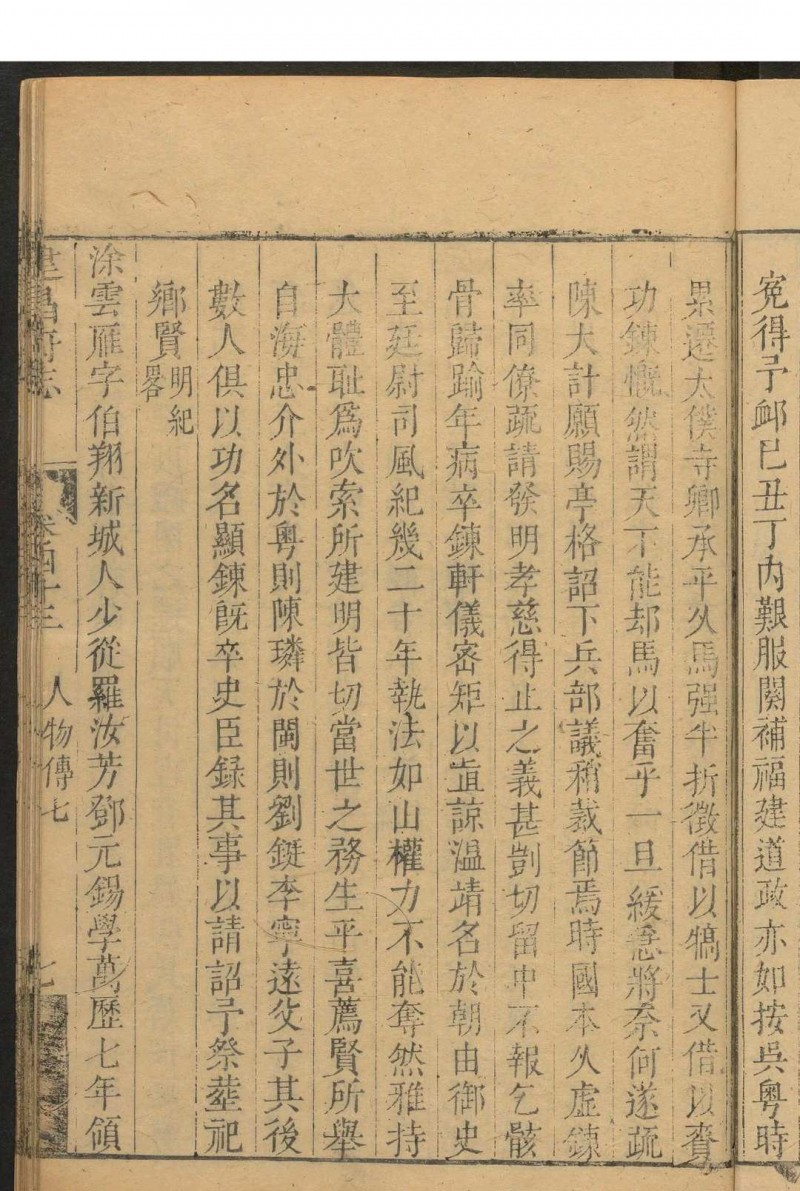 寃得予䘏已丑丁内艱服闋補福建道政亦如按吳粤時
累遷太僕寺卿承平久馬强半折徵借以犒士又借以賚
功錬慨然謂天下能却馬以奮乎一旦緩急將奈何遂疏
陳大計願賜亭格詔下兵部議稍裁節焉時國本久虛錬
率同僚疏請發明孝慈得止之義甚剴切留中不報乞骸
骨歸踰年病卒錬軒儀密矩以直諒温靖名於朝由御史
至廷尉司風紀幾二十年執法如山權力不能奪然雅持
大體耻爲吹索所建明皆切當世之務生平喜薦賢所舉
自海忠介外於粤則陳璘於閩則劉鋌李寧遠父子其後
數人俱以功名顯錬旣卒史臣録其事以請詔予祭塟祀
鄉賢明紀畧
涂雲雁字伯翔新城人少從羅汝芳鄧元錫學萬歷七年領
建昌府志
卷四十三
人物傳七
七